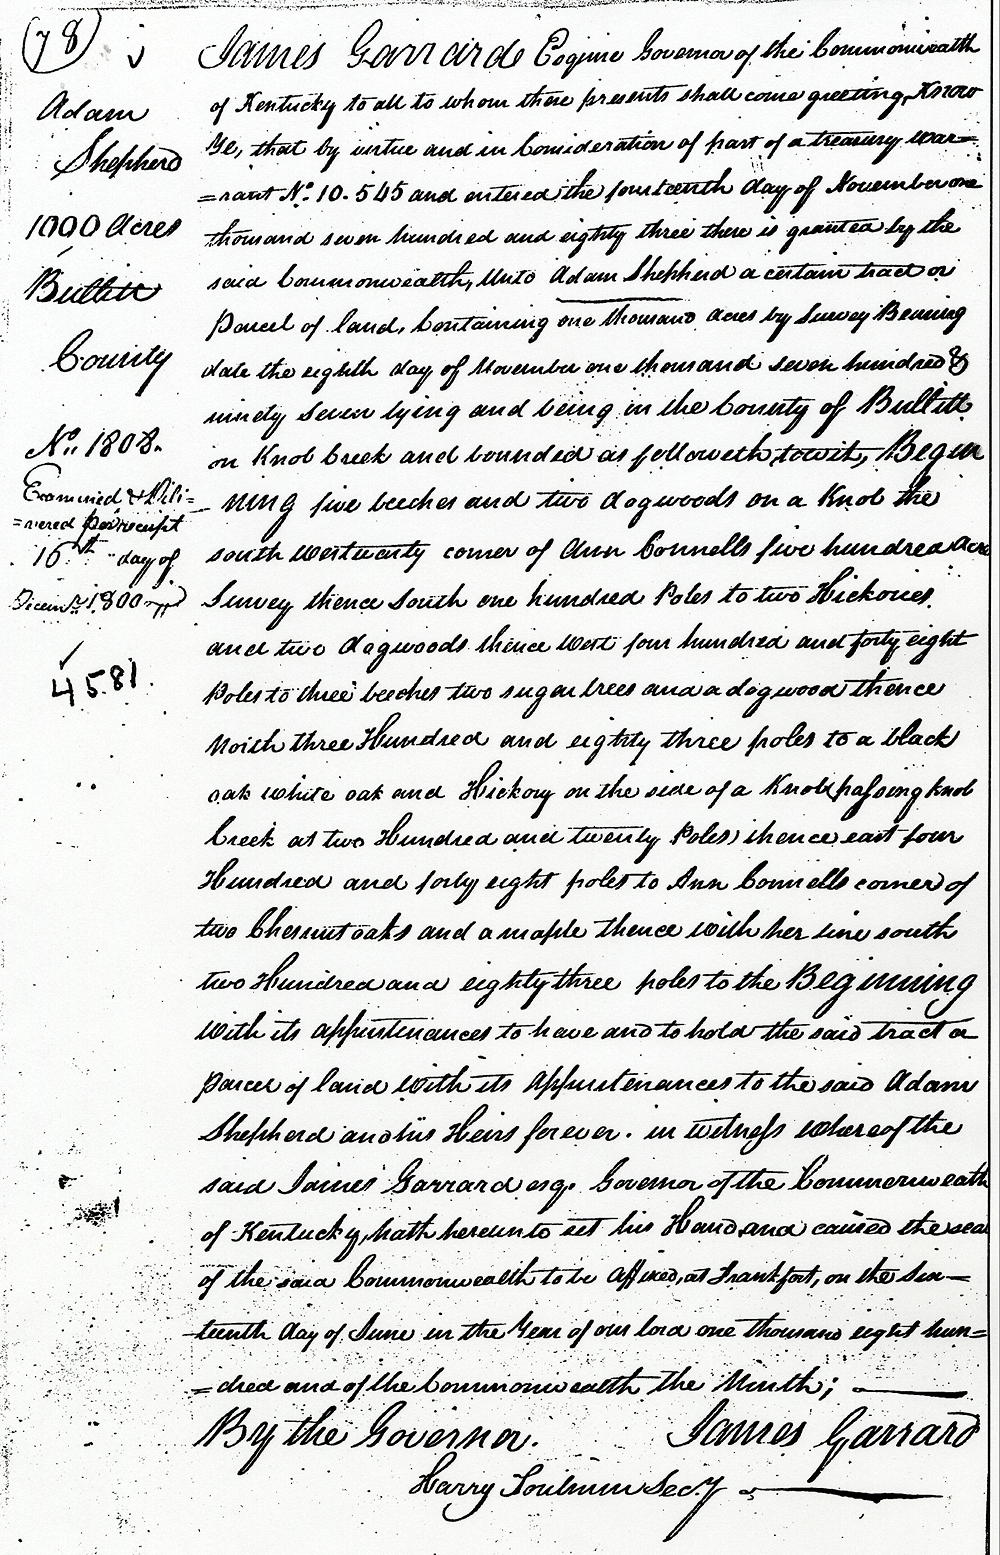 (78)
Adam
Shepherd
1000 Acres
Bullitt
County
No. 1808.
Examined & Deli=
=vered per receipt
16th day of
Decemr. 1800
4581.
James Garrard Esquire Governor of the Commonwealth
of Kentucky to all to whom these presents shall come greeting, Know
Ye, that by virtue and in Consideration of part of a treasury war=
=rant No. 10.545 and entered the fourteenth day of November one
thousand seven hundred and eighty three there is granted by the
said Commonwealth, Unto Adam Shepherd a certain tract or
Parcel of land, Containing one thousand Acres by Survey Bearing
date the eighth day of November one thousand seven hundred &
ninety Seven lying and being in the County of Bullitt
on Knob Creek and bounded as followeth, towit, Begin
ning five beeches and two dogwoods on a Knob the
south westwardly corner of Ann Connells five hundred acre
Survey thence South one hundred Poles to two Hickories
and two dogwoods thence West four hundred and forty eight
Poles to three beeches two sugar trees and a dogwood thence
North three Hundred and eighty three poles to a black
oak white oak and Hickory on the side of a Knob (passing knob
Creek at two Hundred and twenty Poles) thence east four
Hundred and forty eight poles to Ann Connells corner of
two Chesnut oaks and a maple thence with her line south
two Hundred and eighty three poles to the Beginning
With its appurtenances to have and to hold the said tract a
Parcel of land With its Appurtenances to the said Adam
Shepherd and his Heirs forever. in witness whereof the
said James Garrard esq. Governor of the Commonwealth
of Kentucky, hath hereunto set his Hand and caused the seal
of the said Commonwealth to be Affixed, at Frankfort, on the Six=
teenth day of June in the Year of our lord one thousand eight hun=
=dred and of the Commonwealth the Ninth;
By the Governor. James Garrard
Harry Toulmin Secy